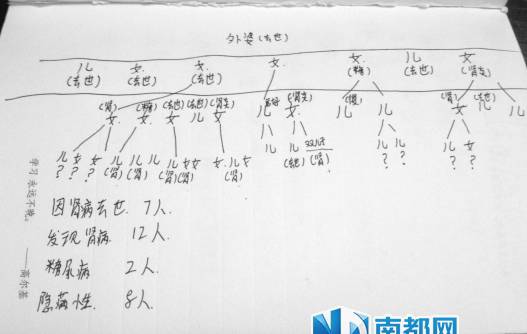 外婆(去世)
儿 女. 女. 女. 女. 儿 女
(去世) (去世) (去世) (糖) (去世) (肾去)
(肾) (糖) (去世) (去世) (肾去) (肾去) (肾) (去世)
女. 女. 女. 儿 女 儿 女. 儿 儿 女 儿 儿
儿 女 女 儿 儿 儿 儿 女 女 女. 儿 女 儿 儿 儿 儿 儿 儿 女
? ? ? (肾) (肾) (肾) (肾) (肾) ? ? ? ?
因肾病去世. 7人.
发现肾病 12人.
糖尿病 2人.
隐藏性. 8人.
学习永远不晚。
——高尔基
南都网